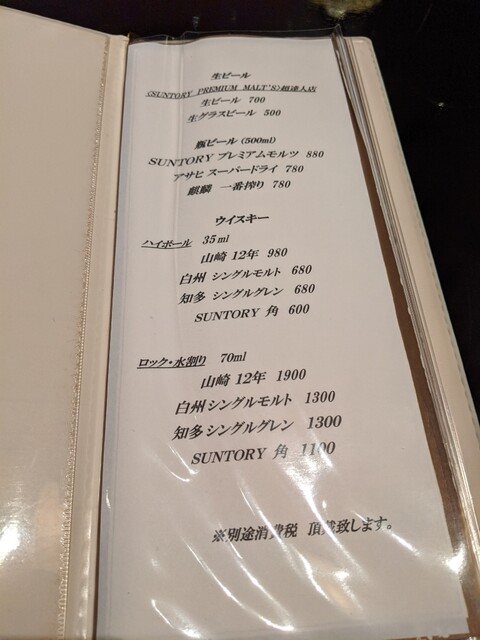 生ビール
〈SUNTORY PREMIUM MALT'S〉超達人店
生ビール 700
生グラスビール 500
瓶ビール (500ml)
SUNTORY プレミアムモルツ 880
アサヒ スーパードライ 780
麒麟 一番搾り 780
ウイスキー
ハイボール 35ml
山崎 12年 980
白州 シングルモルト 680
知多 シングルグレン 680
SUNTORY 角 600
ロック・水割り 70ml
山崎 12年 1900
白州 シングルモルト 1300
知多 シングルグレン 1300
SUNTORY 角 1100
※別途消費税 頂戴致します。